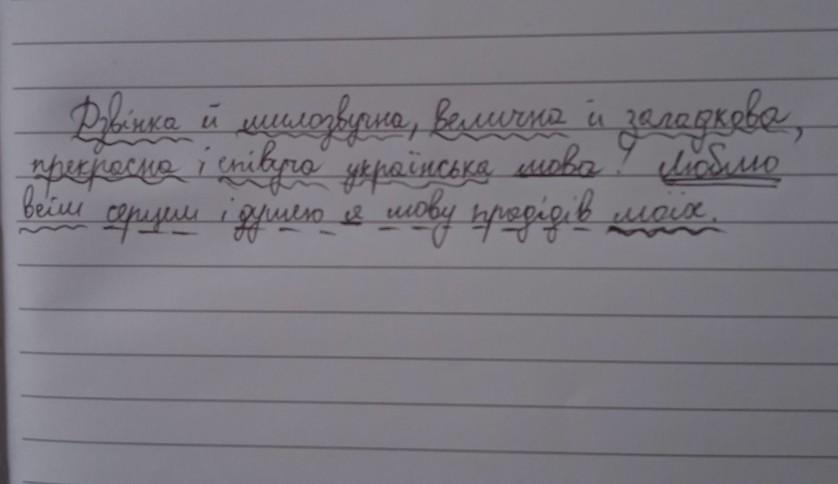 Дзвінка й милозвучна, велична й загадкова,
прекрасна і співуча українська мова! Люблю
всім серцем і душею я мову прадідів моїх.